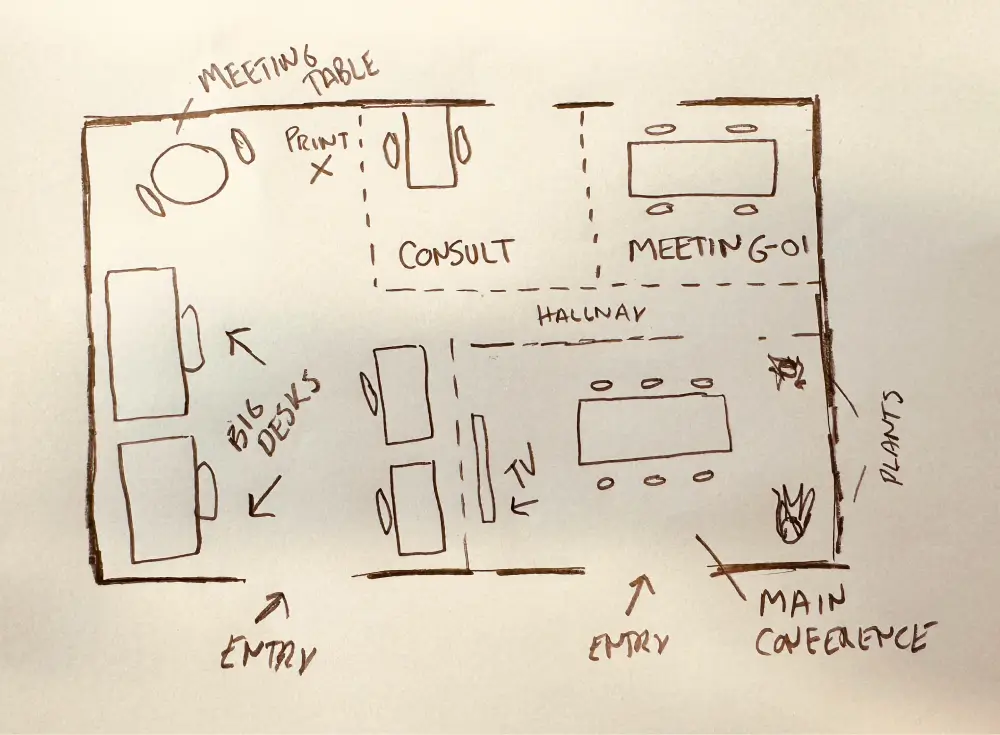 MEETING
TABLE
PRINT
X
CONSULT
MEETING-01
HALLWAY
BIG
DESKS
TV
PLANTS
ENTRY
ENTRY
MAIN
CONFERENCE